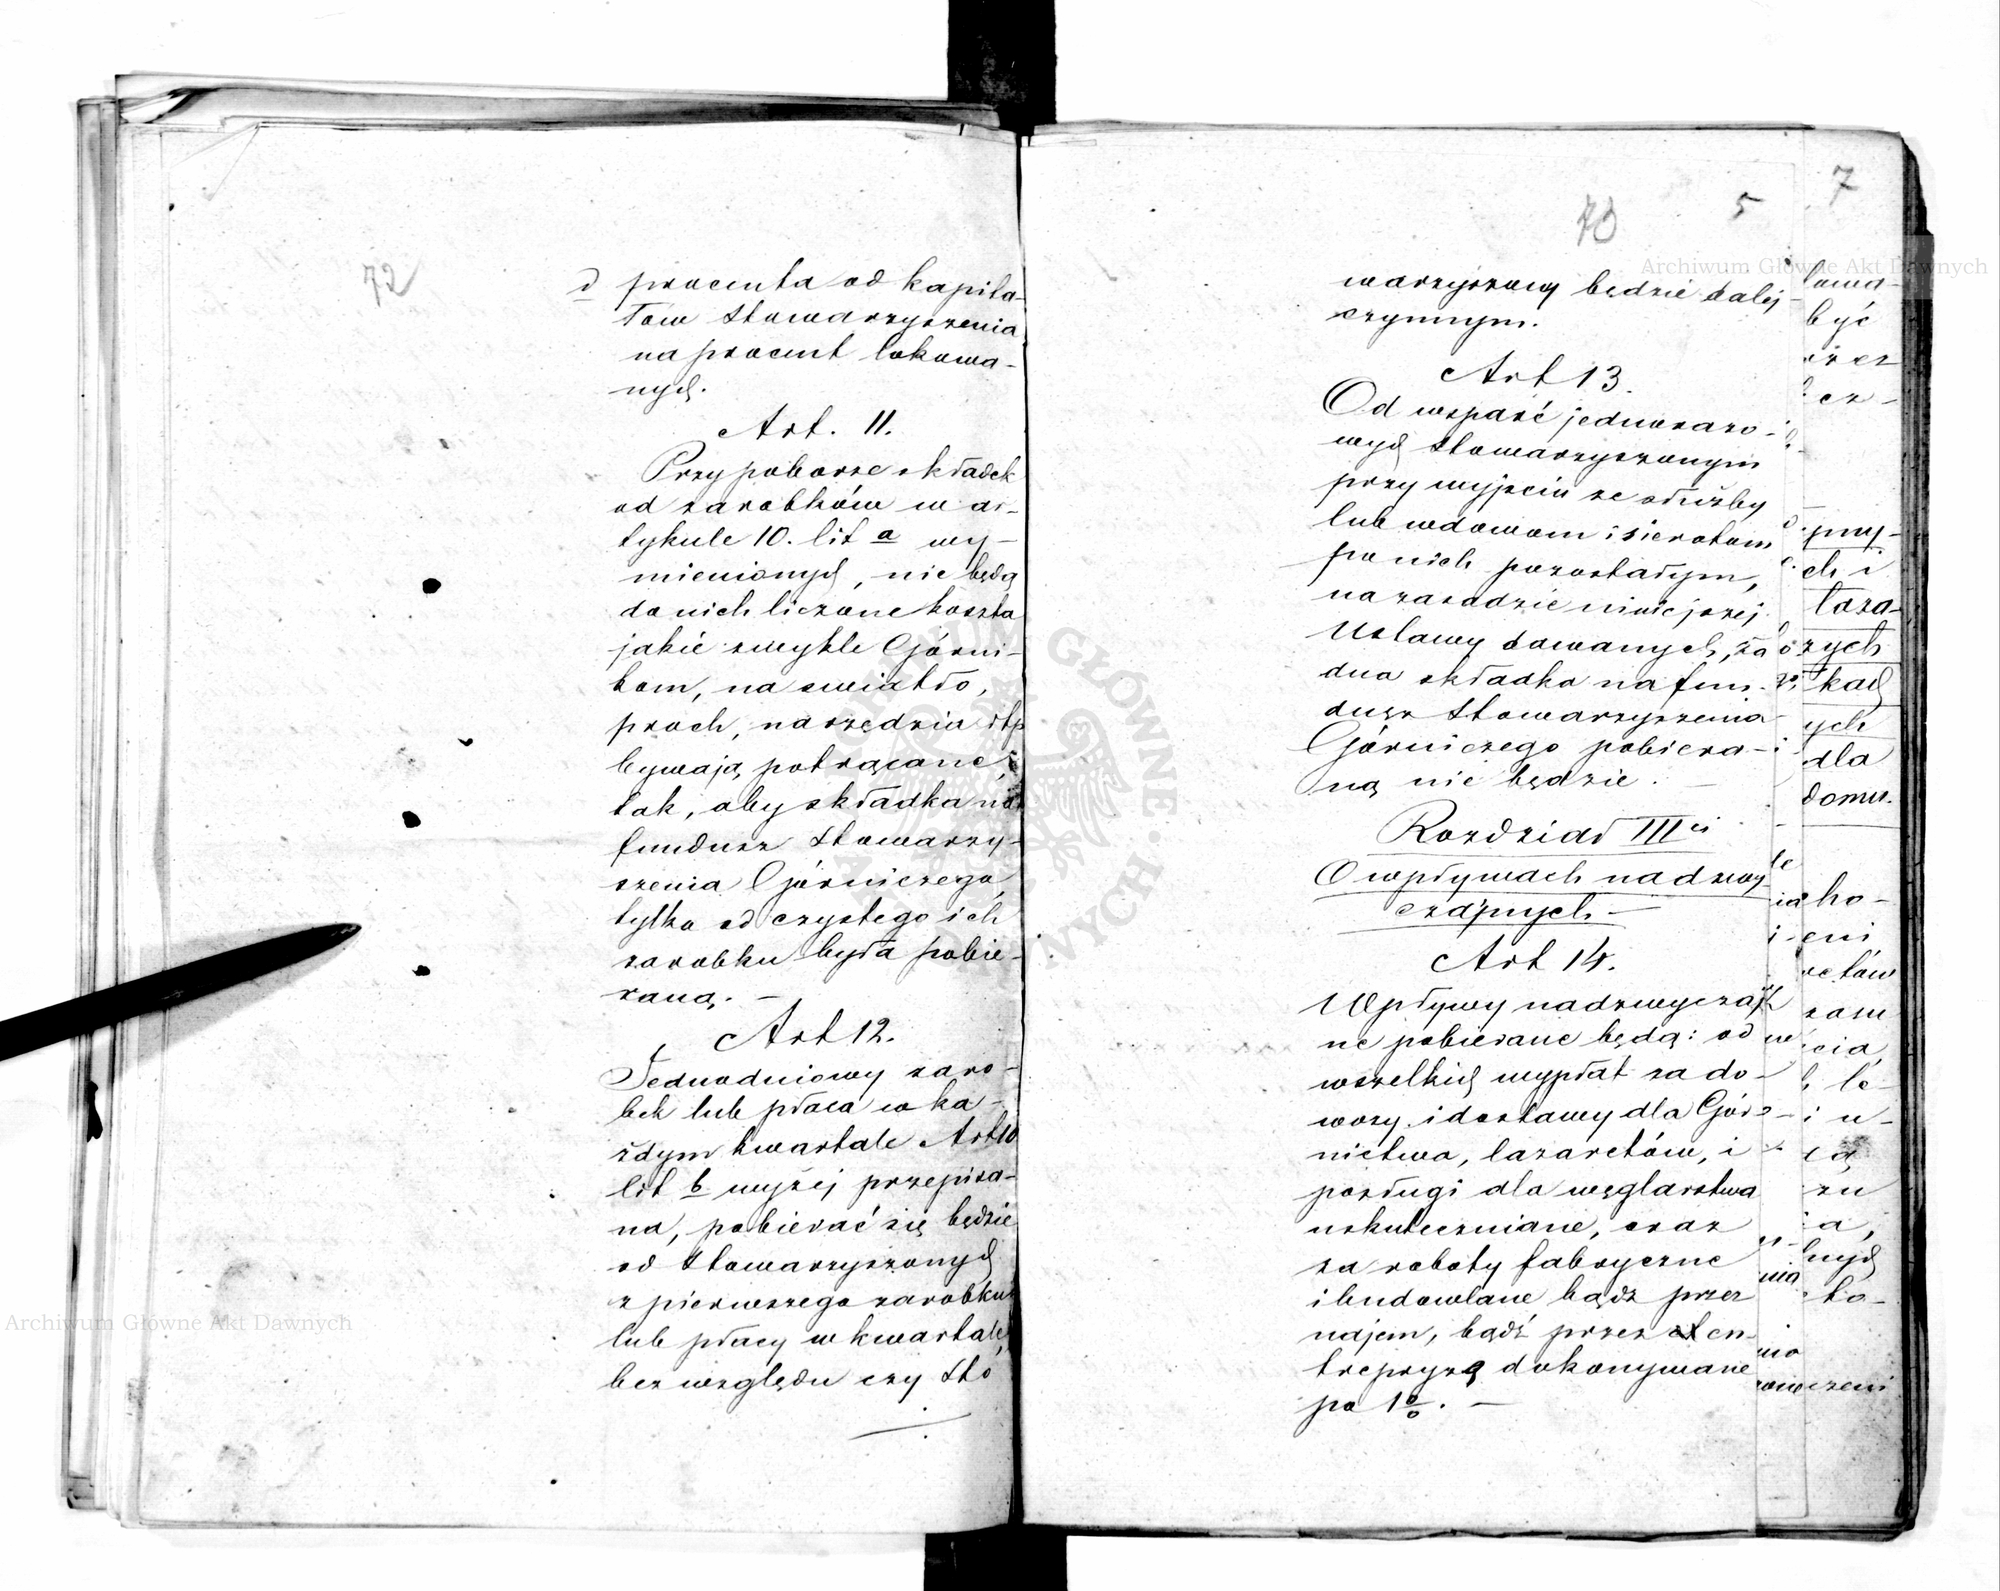 72
d procenta od kapita-
łów Stowarzyszenia
na procent lokowa-
nych.
Art. 11.
Przy poborze składek
od zarobków w ar-
tykule 10. lit a wy-
mienionych, nie będą
do nich liczone koszta
jakie zwykle Górni-
kom, na światło,
proch, narzędzia itp
bywają potrącane,
tak, aby składka na
fundusz Stowarzy-
szenia Górniczego,
tylko od czystego ich
zarobku była pobie-
raną. —
Art 12.
Jednodniowy zaro-
bek lub płaca w ka-
żdym kwartale Art 10
lit b wyżej przepisa-
na, pobierać się będzie
od Stowarzyszonych
z pierwszego zarobku
lub płacy w kwartale,
bez względu czy Sto
7
5
73
warzyszony będzie dalej
czynnym.
Art 13.
Od wsparć jednorazo-
wych Stowarzyszonym
przy wyjściu ze służby
lub wdowom i sierotom
po nich pozostałym,
na zasadzie niniejszej
Ustawy dawanych, ża
dna składka na fun-
dusz Stowarzyszenia
Górniczego pobiera-
ną nie będzie.
Rozdział III ci
O wpływach nadzwy
czajnych. —
Art 14.
Wpływy nadzwyczaj-
ne pobierane będą: od
wszelkich wypłat za do-
wozy i dostawy dla Gór-
nictwa, lazaretów, i
posługi dla węglarstwa
uskuteczniane, oraz
za roboty fabryczne
i budowlane bądź przez
najem, bądź przez en-
trepryzą dokonywane
po 1%. —
być
pny-
ch i
zych
kach
ych
dla
domu.
ho-
eni
Archiwum Główne Akt Dawnych
Archiwum Główne Akt Dawnych